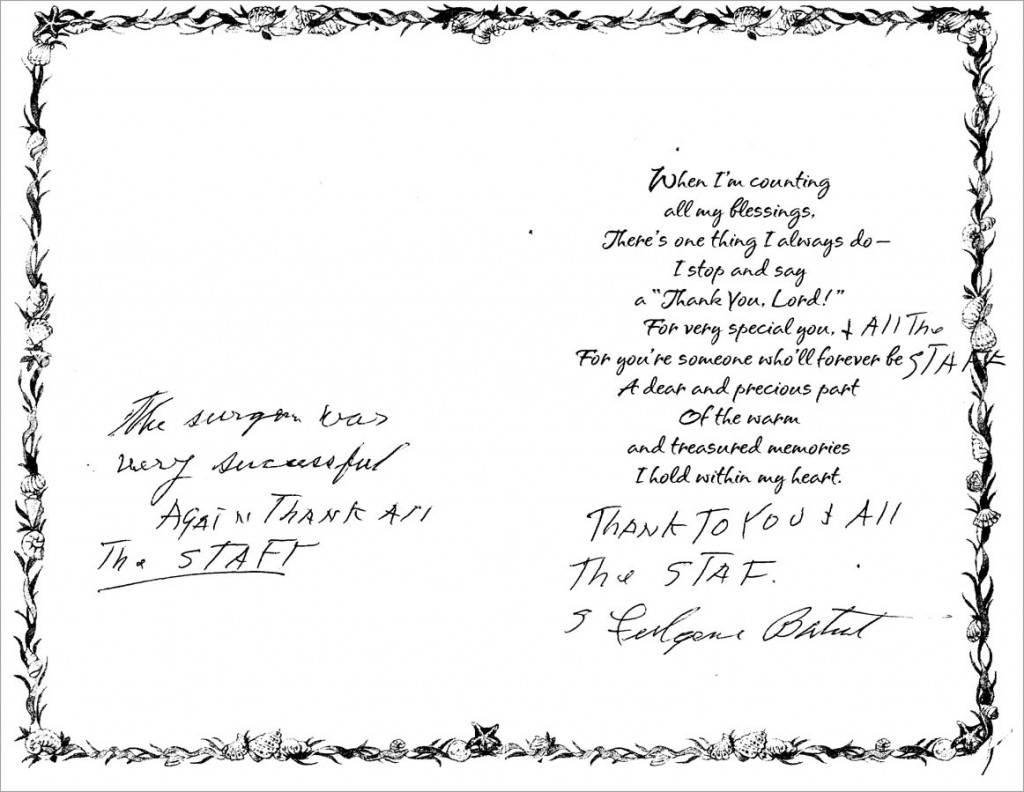 The surgon was
very successful
AGAIN THANK All
The STAFF
When I'm counting
all my blessings,
There's one thing I always do—
I stop and say
a “Thank You, Lord!”
For very special you, & All The
For you're someone who'll forever be STAFF
A dear and precious part
Of the warm
and treasured memories
I hold within my heart.
THANK TO YOU & All
The STAF.